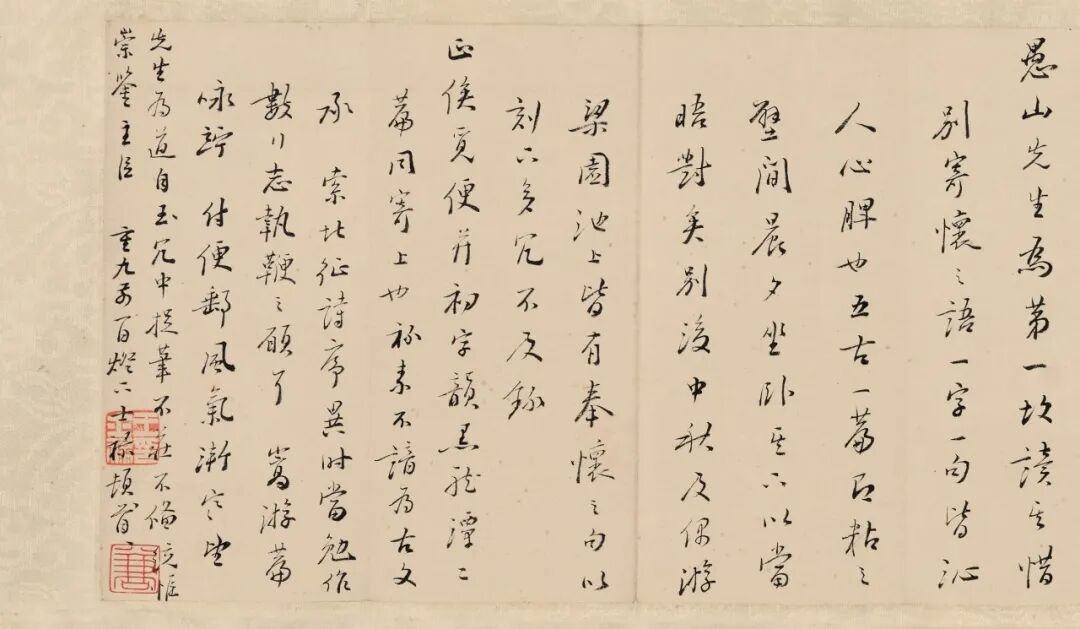 愚山先生爲第一故讀其惜
別寄懷之語一字一句皆沁
人心脾也五古一篇即粘之
壁間晨夕坐卧其下以當
晤對矣別後中秋及偶游
梁園池上皆有奉懷之句以
刻下多冗不及錄
正俟覓便并初字韻黑龍潭二
篇同寄上也祿素不諳爲古文
承 索北征詩序異時當勉作
數行志執鞭之願耳 嵩游篇
咏 付便郵風氣漸寒望
先生爲道自玉冗中捉筆不莊不備 惟
崇鑒主臣 重九前一日燈下士祿頓首